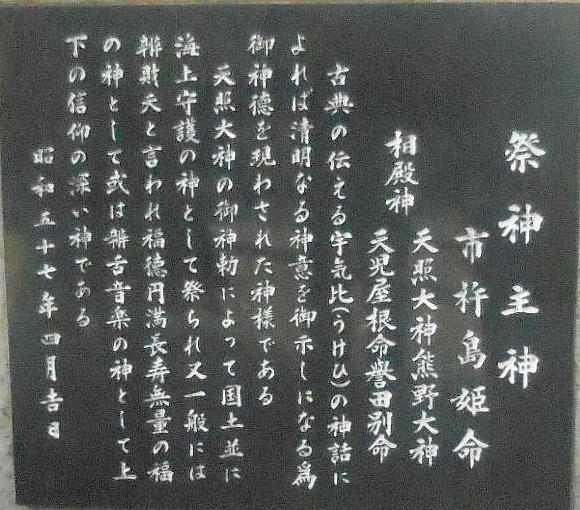 祭神主神
市杵島姫命
天照大神熊野大神
相殿神
天児屋根命誉田別命
古典の伝える宇気比(うけひ)の神話に
よれば清明なる神意を御示しになる為
御神徳を現わされた神様である
天照大神の御神勅によって国土並に
海上守護の神として祭られ又一般には
辨戝天と言われ福徳円満長寿無量の福
の神として或は辨舌音楽の神として上
下の信仰の深い神である
昭和五十七年四月吉日